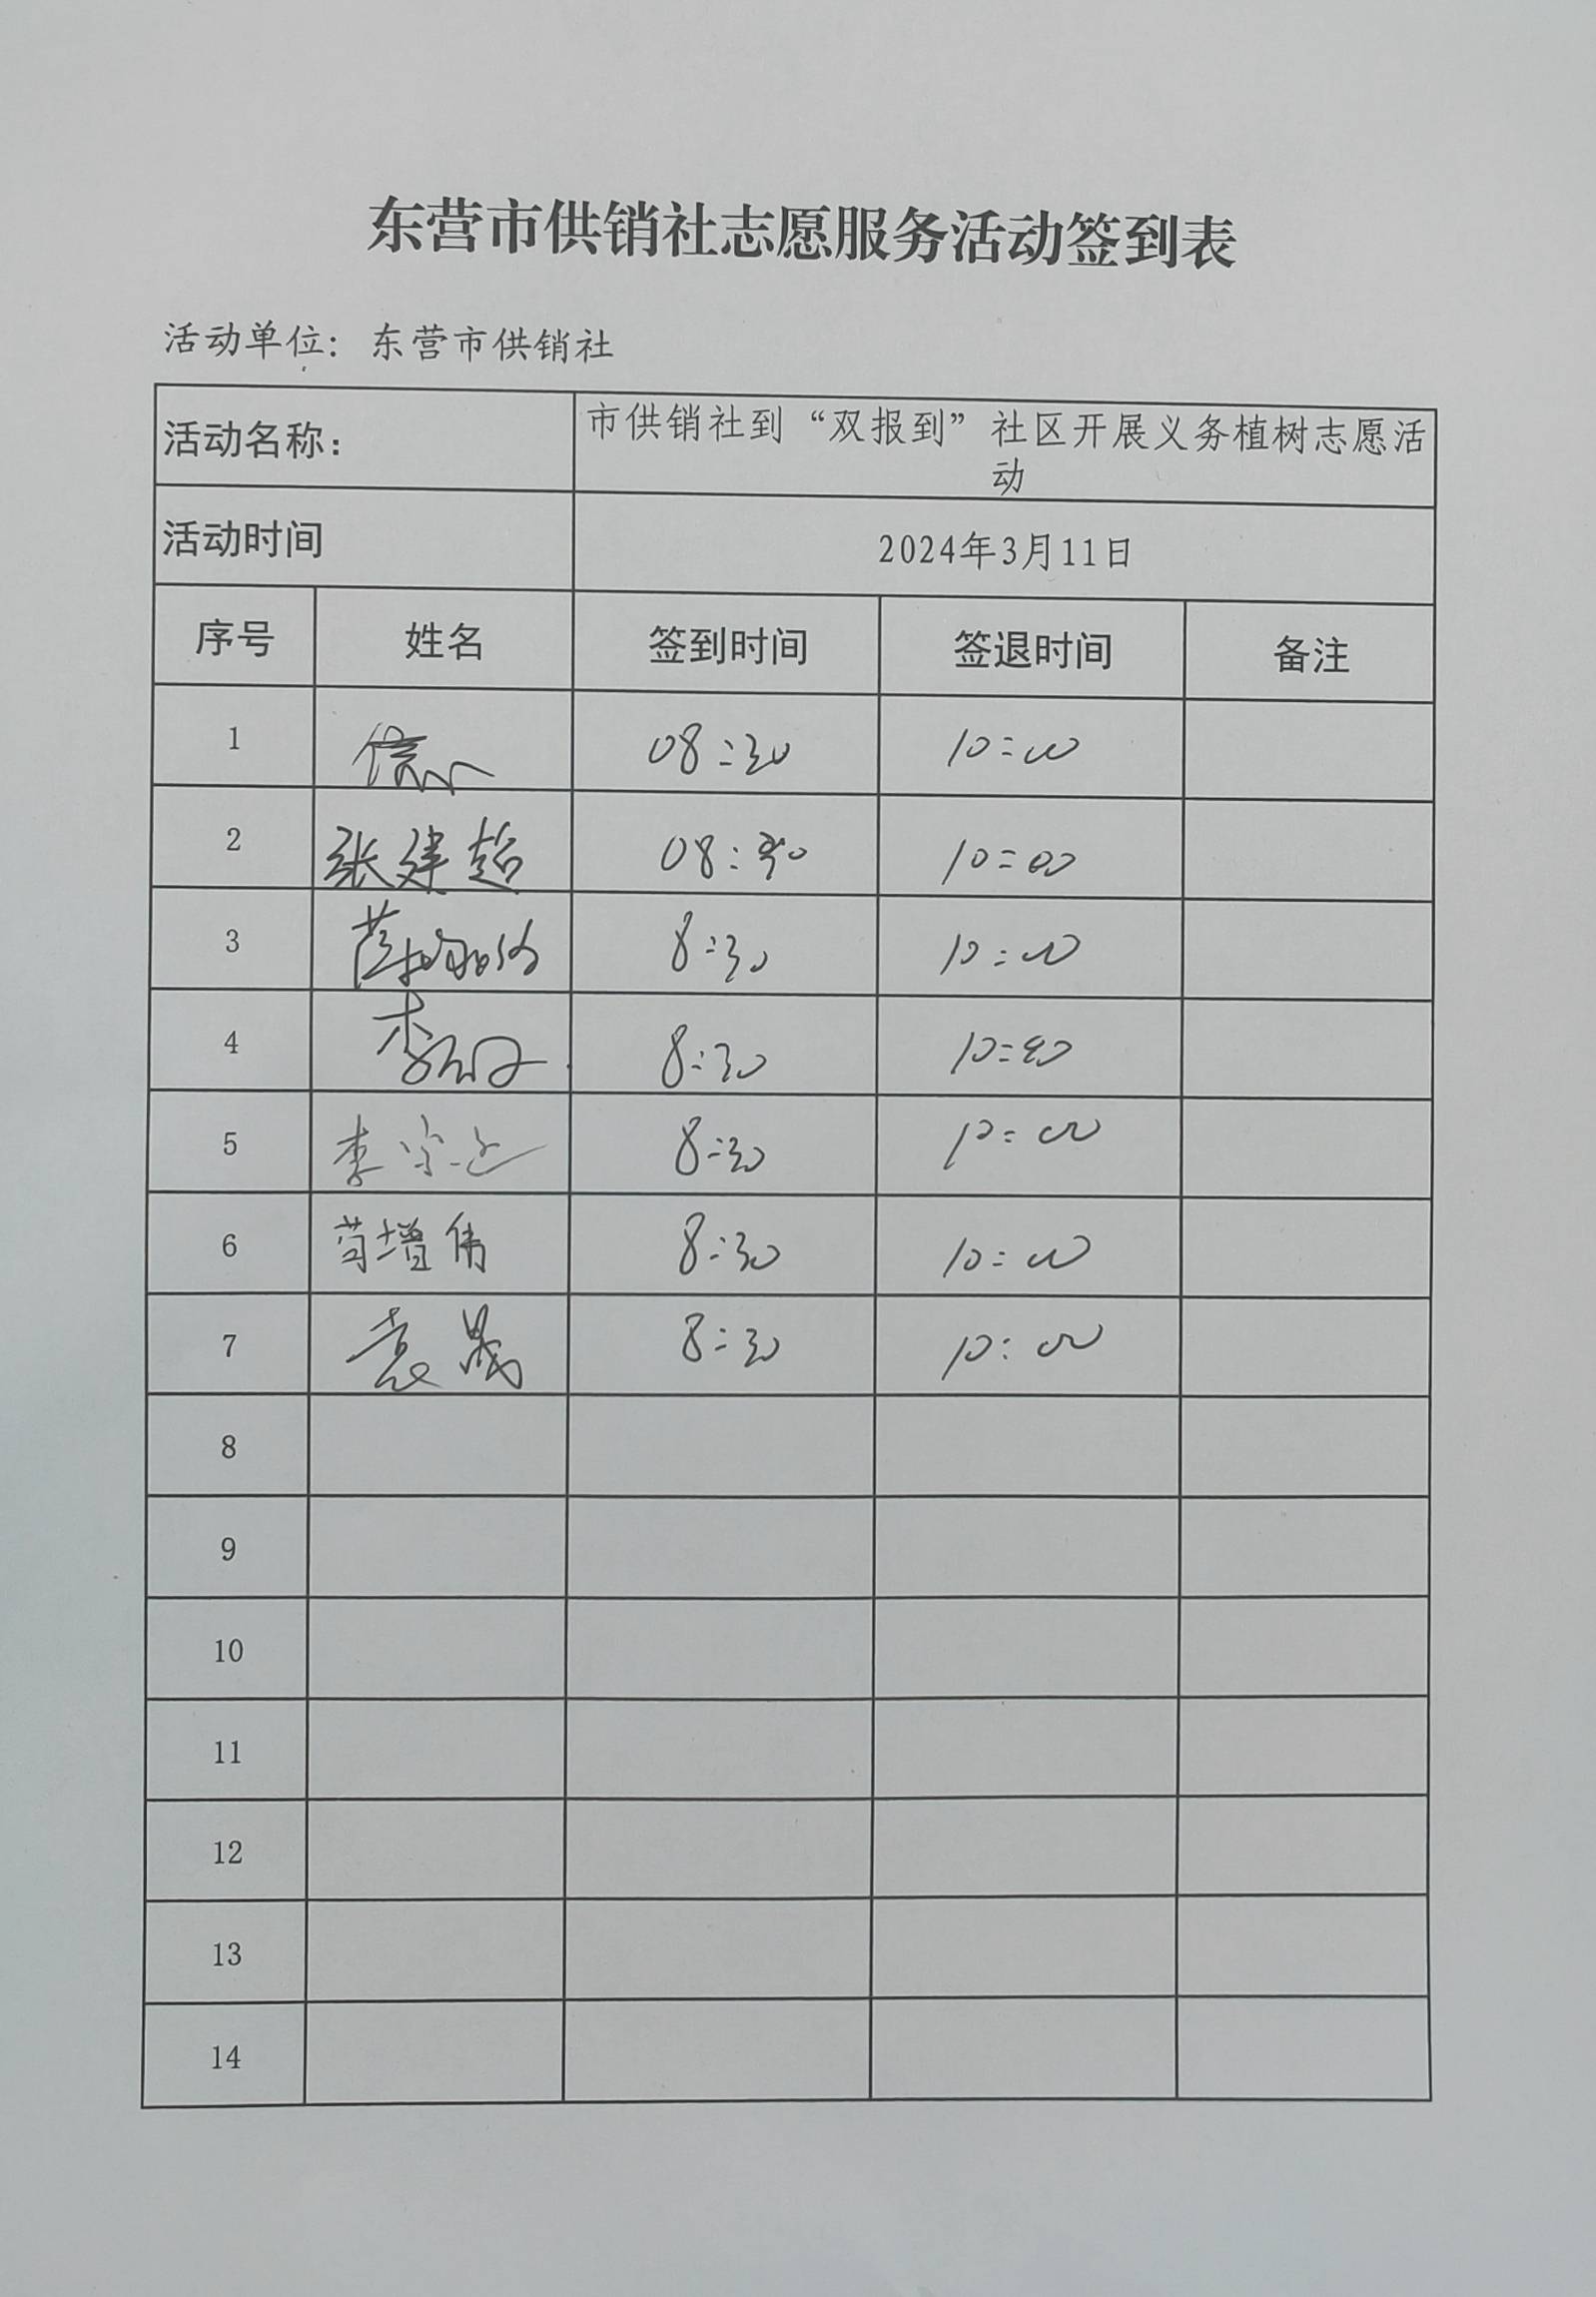 东营市供销社志愿服务活动签到表
活动单位：东营市供销社
活动名称：
市供销社到“双报到”社区开展义务植树志愿活
动
活动时间 2024年3月11日
序号 姓名 签到时间 签退时间 备注
1 08:30 10:00
2 张建超 08:30 10:00
3 薛 8:30 10:00
4 李 8:30 10:00
5 李宗 8:30 10:00
6 苟增伟 8:30 10:00
7 袁晟 8:30 10:00
8
9
10
11
12
13
14